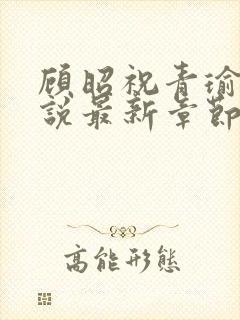 顾昭祝青瑜
說最新章節
高能形態